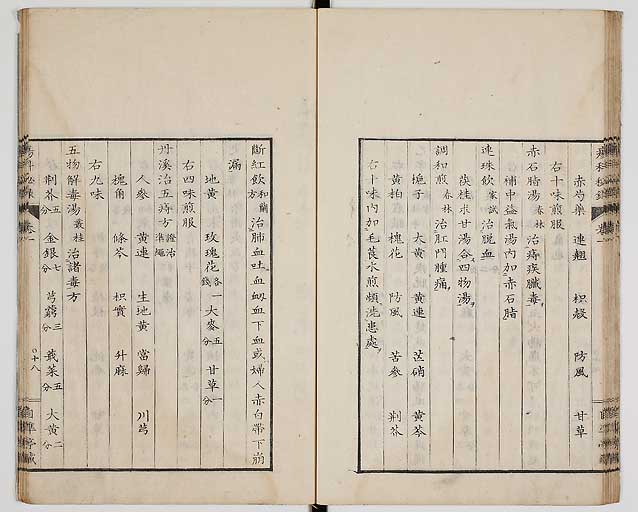 赤芍藥 連翹 枳殼 防風 甘草
右十味煎服
赤石脂湯 春林 治痔疾臟毒
補中益氣湯内加赤石脂
連珠飲 家試 治脱血
苓桂朮甘湯合四物湯
調和煎 春林 治肛門腫痛
梔子 大黄 黄連 芒硝 黄芩
黄柏 槐花 防風 苦參 荆芥
右十味内加毛茛水煎頻洗患處
斷紅飲 和蘭方 治肺血吐血衄血下血或婦人赤白帶下崩
漏
地黄 玫瑰花 各一錢 大麥 五 甘草 一分
右四味煎服
丹溪治五痔方 證治準繩
人參 黄連 生地黄 當歸 川芎
槐角 條芩 枳實 升麻
右九味
五物解毒湯 叢桂 治諸毒方
荆芥 五分 金銀 七分 芎藭 三分 蕺菜 五分 大黄 二分
卷一
十八